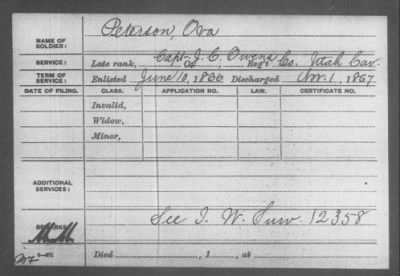 NAME OF SOLDIER: Peterson, Ova
SERVICE: Late rank, Capt. J. C. Owens Co. Utah Cav.
Of Reg't
TERM OF SERVICE: Enlisted June 10, 1866, Discharged Nov. 1, 1867
DATE OF FILING. CLASS. APPLICATION NO. LAW. CERTIFICATE NO.
Invalid,
Widow,
Minor,
ADDITIONAL SERVICES:
See I. W. Surv. 12358
REMARKS:
Died , 1 , at